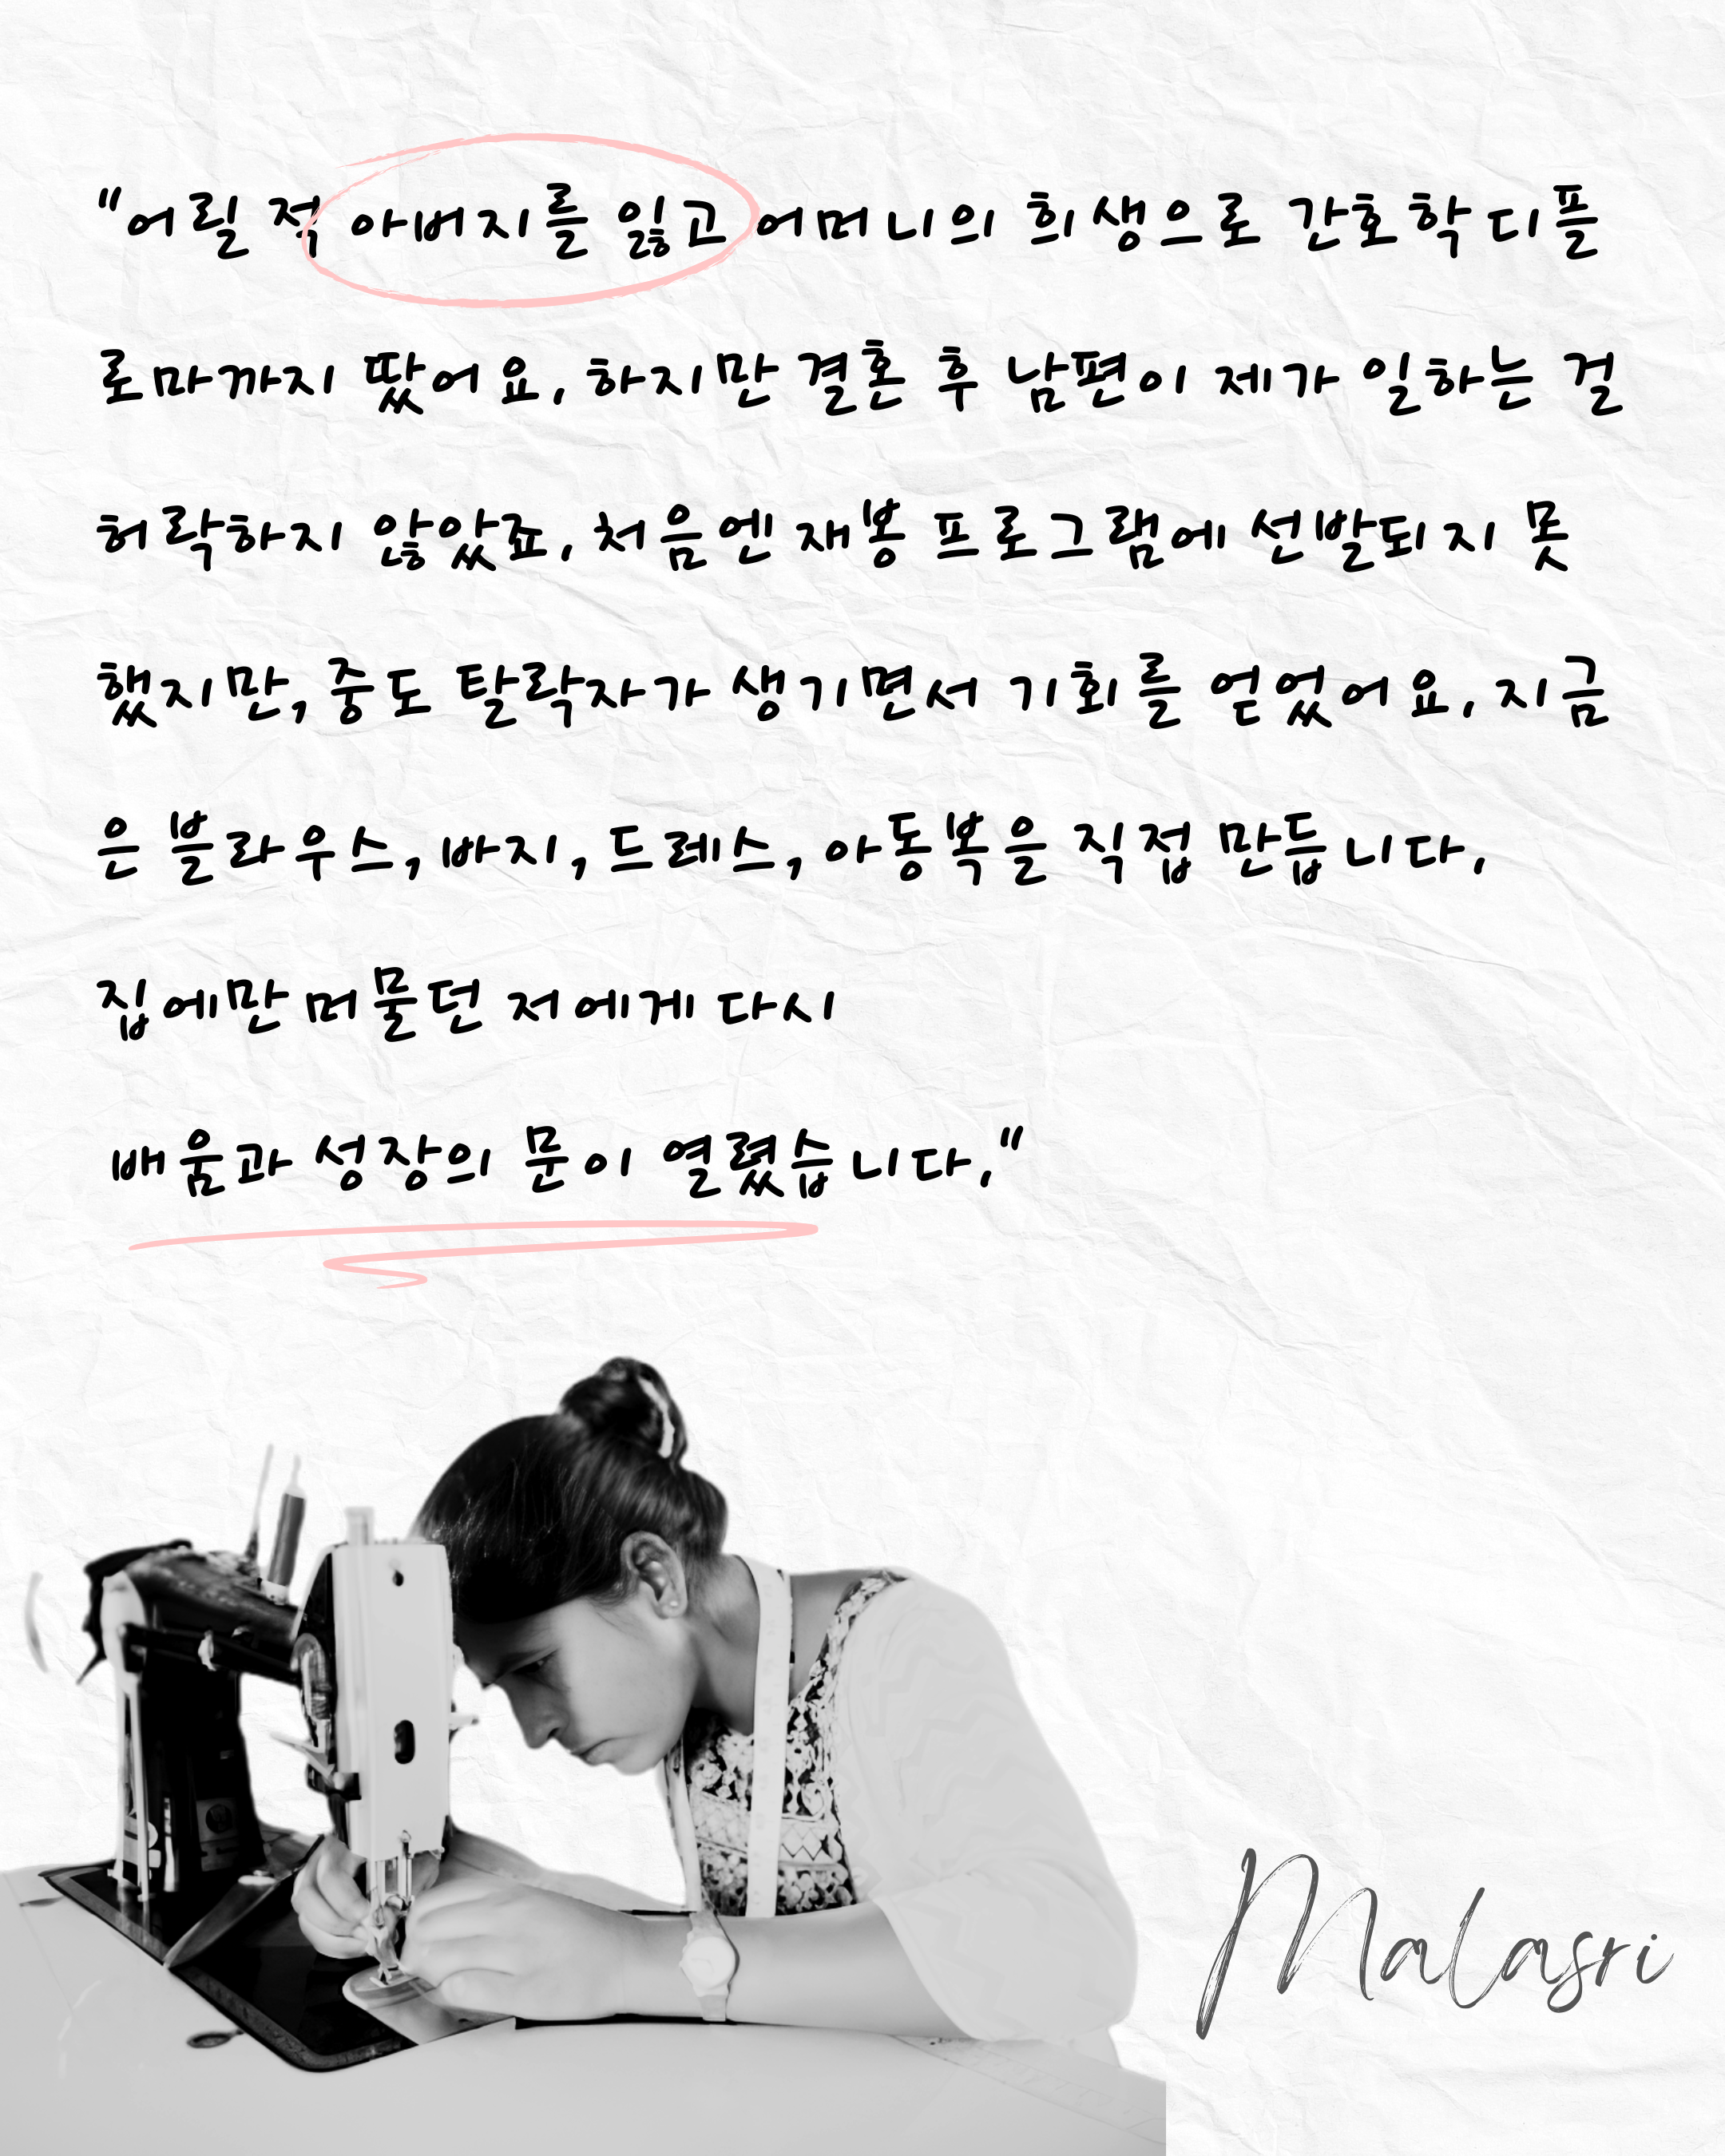 "어릴 적 아버지를 잃고 어머니의 희생으로 간호학 디플
로마까지 땄어요. 하지만 결혼 후 남편이 제가 일하는 걸
허락하지 않았죠. 처음엔 재봉 프로그램에 선발되지 못
했지만, 중도 탈락자가 생기면서 기회를 얻었어요. 지금
은 블라우스, 바지, 드레스, 아동복을 직접 만듭니다.
집에만 머물던 저에게 다시
배움과 성장의 문이 열렸습니다."
Malasri